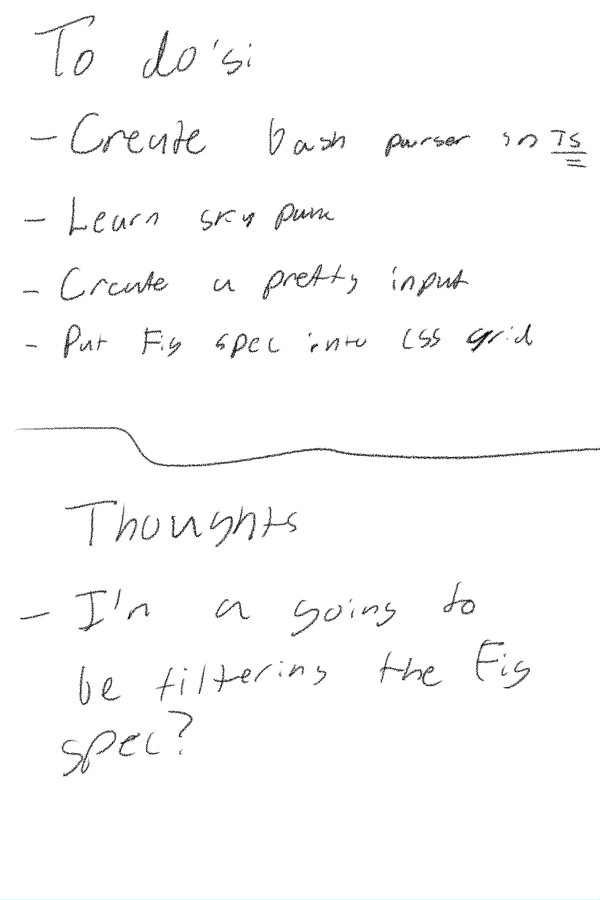 To do's:
- Create bash parser in TS
- Learn
- Create a pretty input
- Put Fig spec into CSS grid
Thoughts
- I'm a going to
be filtering the Fig
spec?